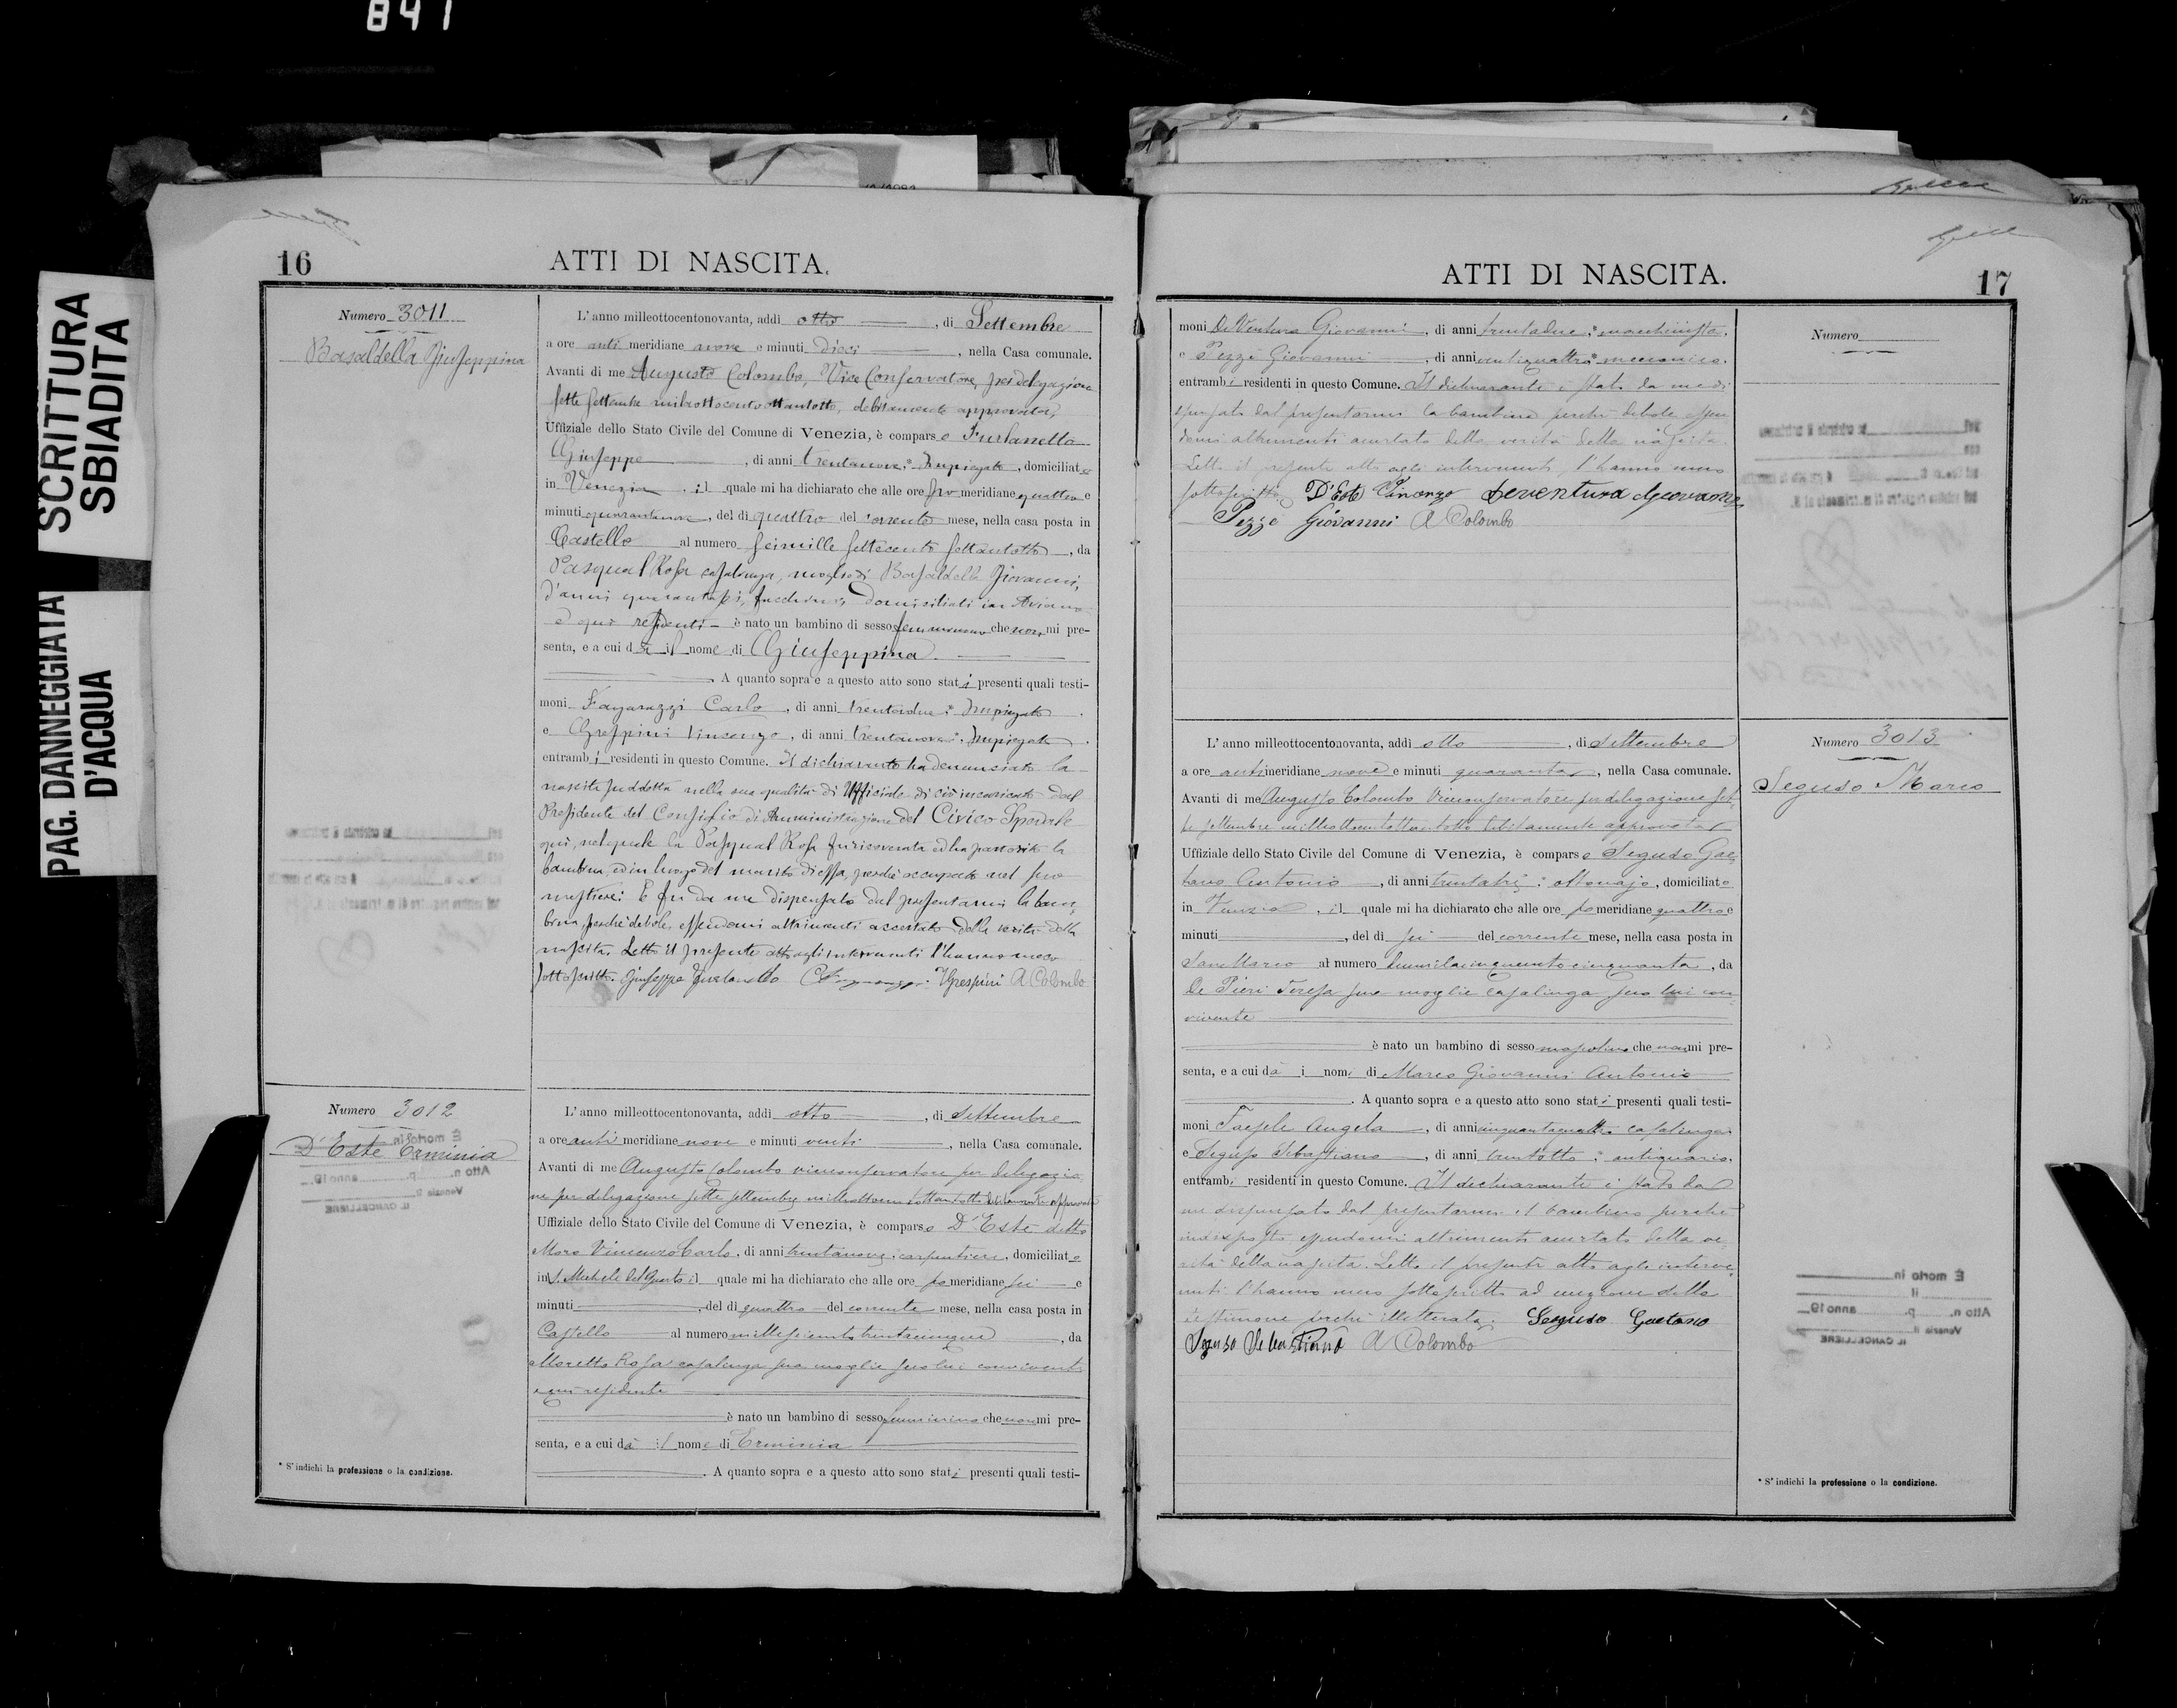 841
SCRITTURA
SBIADITA
PAG. DANNEGGIATA
D'ACQUA
16
ATTI DI NASCITA.
Numero 3011
Basaldella Giuseppina
L'anno milleottocentonovanta, addì otto, di Settembre
a ore anti meridiane nove e minuti dieci, nella Casa comunale.
Avanti di me Augusto Colombo, Vice Conservatore, per delegazione
sette settembre milleottocentottantotto, debitamente approvata,
Uffiziale dello Stato Civile del Comune di Venezia, è comparso Furlanetto
Giuseppe, di anni trentanove,* Impiegato, domiciliato
in Venezia, il quale mi ha dichiarato che alle ore po meridiane quattro e
minuti quarantanove, del dì quattro del corrente mese, nella casa posta in
Castello al numero seimille settecento settantotto, da
Pasqual Rosa casalinga, moglie di Basaldella Giovanni,
d'anni quarantasei, facchino, domiciliati in Aviano
e qui residenti è nato un bambino di sesso femminino che non mi pre-
senta, e a cui dà il nome di Giuseppina
A quanto sopra e a questo atto sono stati presenti quali testi-
moni Fagarazzi Carlo, di anni trentadue,* Impiegato
e Grespini Vincenzo, di anni trentanove,* Impiegato
entrambi residenti in questo Comune. Il dichiarante ha denunciato la
nascita suddetta nella sua qualità di Ufficiale di ciò incaricato dal
Presidente del Consiglio di Amministrazione del Civico Spedale
qui, nel quale la Pasqual Rosa fu ricoverata ed ha partorito la
bambina, ed in luogo del marito di essa, perchè occupato nel suo
mestiere. E fu da me dispensato dal presentarmi la bam-
bina, perchè debole, essendomi altrimenti accertato della verità della
nascita. Letto il presente atto agli intervenuti l'hanno meco
sottoscritto. Giuseppe Furlanetto C Fagarazzi. VGrespini A Colombo
Numero 3012
D'Este Erminia
È morto in
Atto n. p. anno 19
Venezia li
IL CANCELLIERE
L'anno milleottocentonovanta, addì otto, di Settembre
a ore anti meridiane nove e minuti venti, nella Casa comunale.
Avanti di me Augusto Colombo viceconservatore per delegazio
ne per delegazione sette settembre milleottocentottantotto debitamente approvata
Uffiziale dello Stato Civile del Comune di Venezia, è comparso D'Este detto
Moro Vincenzo Carlo, di anni trentanove, carpentiere, domiciliato
in S. Michele del Quarto il quale mi ha dichiarato che alle ore po meridiane sei e
minuti, del dì quattro del corrente mese, nella casa posta in
Castello al numero milleseicento trentacinque, da
Moretto Rosa casalinga sua moglie seco lui convivente
e qui residente
è nato un bambino di sesso femminino che non mi pre-
senta, e a cui dà il nome di Erminia
A quanto sopra e a questo atto sono stati presenti quali testi-
* S'indichi la professione o la condizione.
ATTI DI NASCITA.
17
moni De Ventura Giovanni, di anni trentadue,* macchinista
e Pezzè Giovanni, di anni ventiquattro* meccanico
entrambi residenti in questo Comune. Il dichiarante è stato da me di
spensato dal presentarmi la bambina perchè debole essen
domi altrimenti accertato della verità della nascita.
Letto il presente atto agli intervenuti, l'hanno meco
sottoscritto. D'Este Vincenzo Deventura Giovanni
Pezzè Giovanni A Colombo
Numero
L'anno milleottocentonovanta, addì otto, di Settembre
a ore anti meridiane nove e minuti quaranta, nella Casa comunale.
Avanti di me Augusto Colombo Viceconservatore per delegazione set
te settembre milleottocentottantotto debitamente approvata
Uffiziale dello Stato Civile del Comune di Venezia, è comparso Seguso Gae
tano Antonio, di anni trentatrè, ottonajo, domiciliato
in Venezia, il quale mi ha dichiarato che alle ore po meridiane quattro e
minuti, del dì sei del corrente mese, nella casa posta in
San Marco al numero duemilacinquecentocinquanta, da
De Pieri Teresa sua moglie casalinga seco lui con
vivente
è nato un bambino di sesso mascolino che non mi pre-
senta, e a cui dà i nomi di Marco Giovanni Antonio
A quanto sopra e a questo atto sono stati presenti quali testi-
moni Angela, di anni cinquantaquattro casalinga
e Seguso Sebastiano, di anni, antiquario,
entrambi residenti in questo Comune. Il dichiarante è stato da
me dispensato dal presentarmi il bambino perchè
indisposto, essendomi altrimenti accertato della ve
rità della nascita. Letto il presente atto agli interve
nuti l'hanno meco sottoscritto ad eccezione della
testimone perchè illetterata. Seguso Gaetano
Seguso Sebastiano A Colombo
Numero 3013
Seguso Marco
È morto in
il
Atto n. p. anno 19
Venezia li
IL CANCELLIERE
* S'indichi la professione o la condizione.